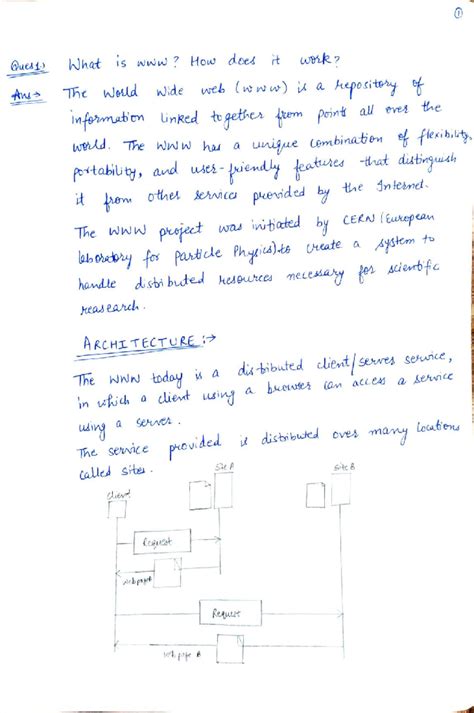 1
Ques1) What is www? How does it work?
Ans→ The World Wide web (www) is a repository of
information linked together from points all over the
world. The WWW has a unique combination of flexibility,
portability, and user-friendly features that distinguish
it from other services provided by the Internet.
The WWW project was initiated by CERN (European
laboratory for Particle Physics) to create a system to
handle distributed resources necessary for scientific
reasearch.
ARCHITECTURE :→
The WWW today is a distributed client/server service,
in which a client using a browser can access a service
using a server.
The service provided is distributed over many locations
called sites.
Client
Site A
Site B
Request
web page A
Request
web page B